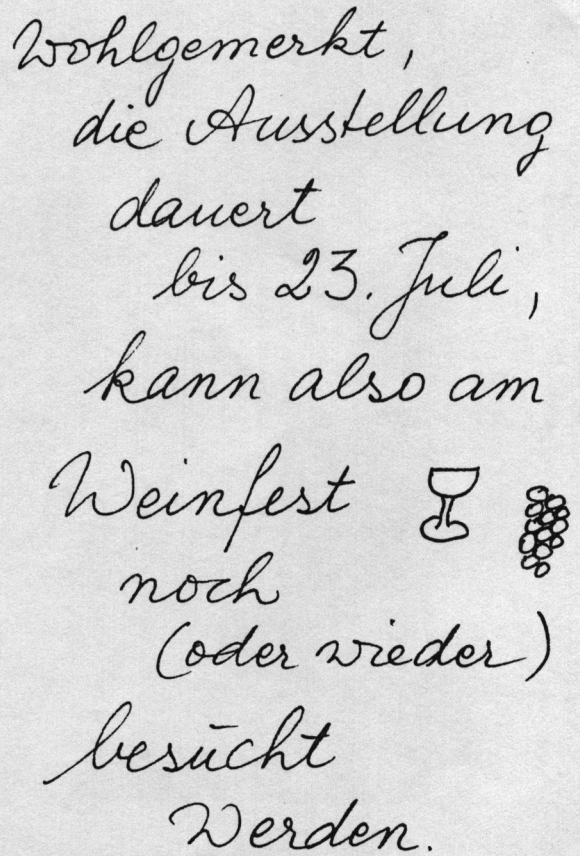 Wohlgemerkt,
die Ausstellung
dauert
bis 23. Juli,
kann also am
Weinfest
noch
(oder wieder)
besucht
Werden.